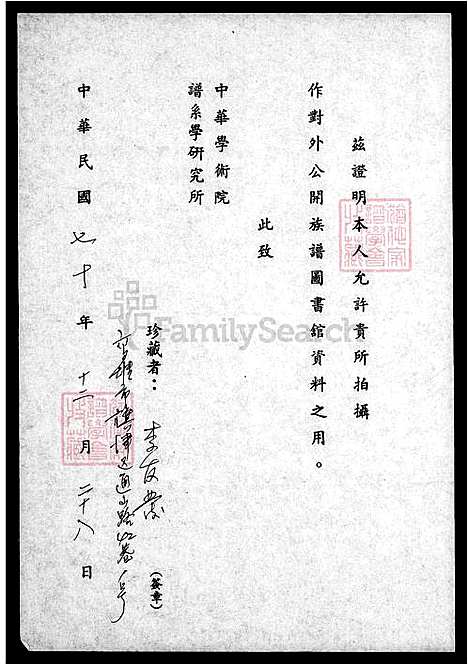 茲證明本人允許貴所拍攝
作對外公開族譜圖書館資料之用。
此致
中華學術院
譜系學研究所
珍藏者：李友
(簽章)
市旗津區通山路 巷 號
中華民國七十年十二月二十八日
FamilySearch